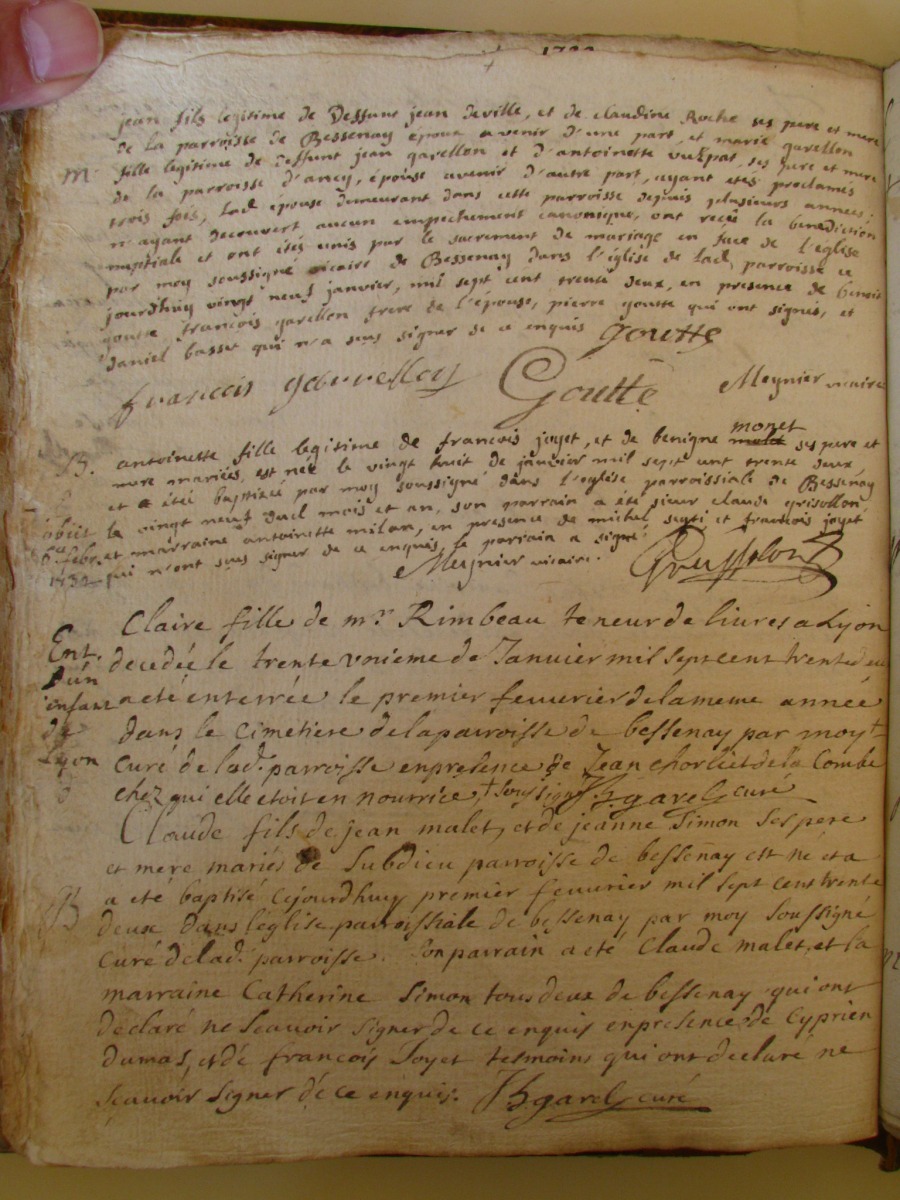 1732
jean fils legitime de Deffunt jean deville, et de claudine Roche ses pere et mere
de la parroisse de Bessenay époux avenir d'une part, et marie gavellon
M. fille legitime de deffunt jean gavellon et d'antoinette ses pere et mere
de la parroisse d'ancy, épouse avenir d'autre part, ayant etés proclamés
trois fois, lad. épouse demeurant dans cette parroisse depuis plusieurs années;
n'ayant decouvert aucun empechement canonique, ont recü la benediction
nuptiale et ont étés unis par le sacrement de mariage en face de l'église
par moy soussigné vicaire de Bessenay dans l'église de lad. parroisse ce
jourdhuy vingt neuf janvier, mil sept cent trente deux, en presence de benoit
goutte, francois gavellon frere de l'épouse, pierre goutte qui ont signés, et
daniel basset qui n'a sçus signer de ce enquis Goutte
francois gavellon Goutte Meynier vicaire
monet
B. antoinette fille legitime de francois joyet, et de benigne ses pere et
mere mariés, est neé le vingt huit de janvier mil sept cent trente deux
et a été baptisée par moy soussigné dans l'eglise parroissiale de Bessenay
le vingt neuf dud. mois et an, son parrain a été sieur claude
et marraine antoinette milan, en presence de michel et francois joyet
qui n'ont sçus signer de ce enquis, le parrain a signé.
Meynier vicaire.
obiit
6e febr.
1732
Claire fille de mr. Rimbeau teneur de livres a Lyon
decedée le trente unieme de Janvier mil sept cent trente deux
a eté enterrée le premier fevurier de la meme année
dans le Cimetiere de la parroisse de bessenay par moy †
Curé de lad. parroisse en presence de Jean chorliet de la Combe
chez qui elle étoit en nourrice, † soussigné JB garel curé
Ent.
d'un
enfant
de
Lyon
Claude fils de jean malet, et de jeanne Simon Ses pere
et mere mariés de Subdieu parroisse de bessenay est né et a
a eté baptisé cejourdhuy premier fevurier mil sept cent trente
B deux dans l'église parroissiale de bessenay par moy Soussigné
curé de lad. parroisse. Son parrain a eté Claude malet, et la
marraine Catherine Simon tous deux de bessenay qui ont
declaré ne Scavoir signer de ce enquis en presence de Cyprien
dumas, et de francois Joyet tesmoins qui ont declaré ne
sçavoir signer de ce enquis. JB garel curé